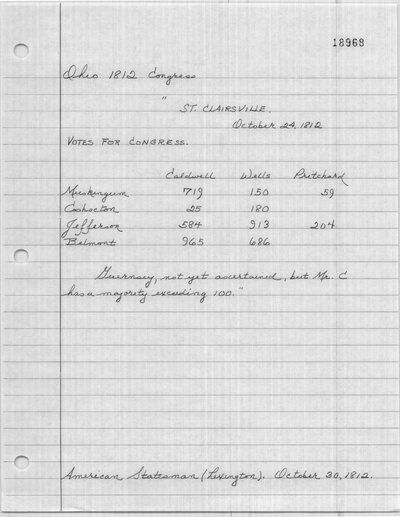 18968
Ohio 1812 Congress
" ST. CLAIRSVILLE.
October 24, 1812
VOTES FOR CONGRESS.
Caldwell Wells Pritchard
Muskingum 719 150 59
Coshocton 25 180
Jefferson 584 913 204
Belmont 965 686
Guernsey, not yet ascertained, but Mr. C
has a majority exceeding 100."
American Statesman (Lexington). October 30, 1812.